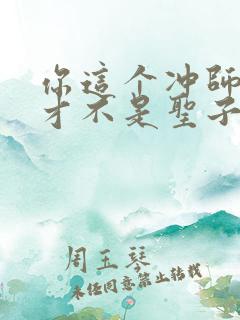 你這个冲師
才不是聖子
周玉琴
未经同意禁止转载